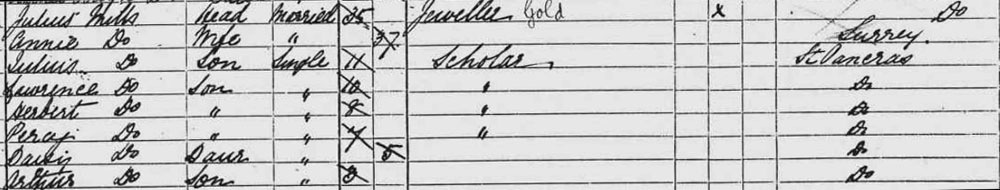 Julius Mills Head Married 35 Jeweller Gold x Do
Annie Do Wife " 37 Surrey
Julius Do Son Single 11 Scholar St Pancras
Lawrence Do Son " 10 " Do
Herbert Do " " 8 " Do
Percy Do " " 7 " Do
Daisy Do Daur " 5 Do
Arthur Do Son " 3 Do